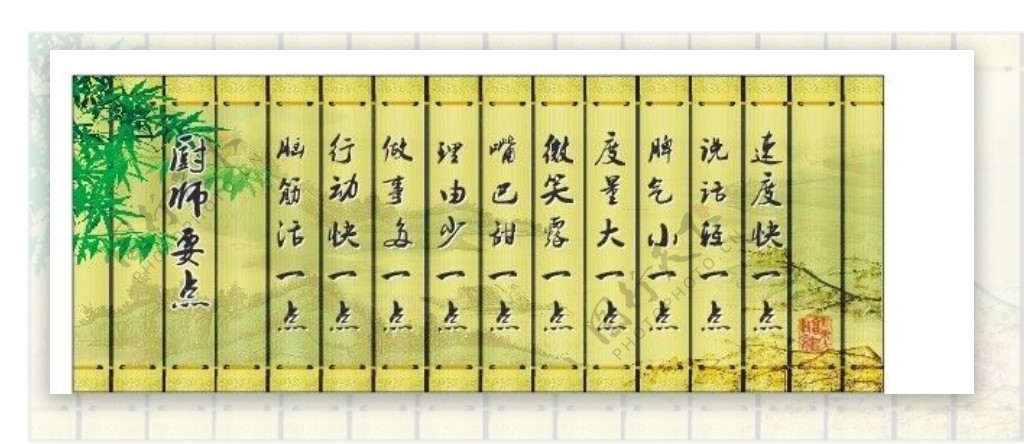 厨师要点
脑筋活一点
行动快一点
做事多一点
理由少一点
嘴巴甜一点
微笑露一点
度量大一点
脾气小一点
说话轻一点
速度快一点